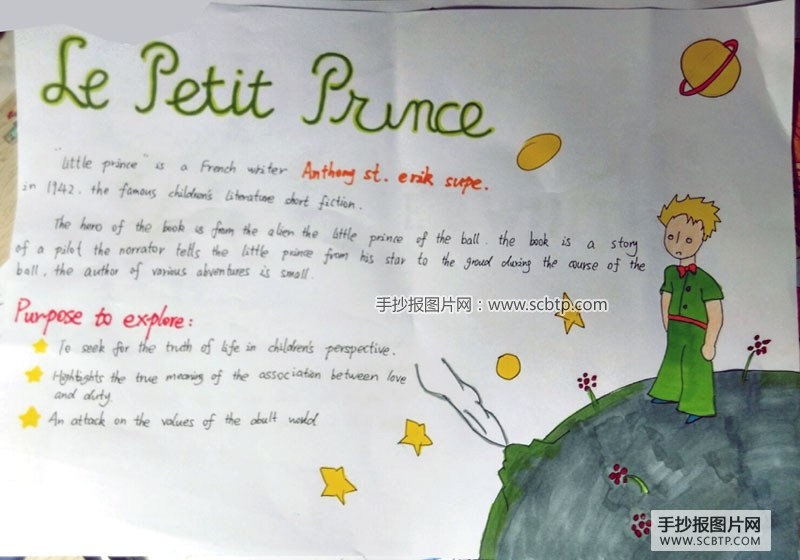 Le Petit Prince
"little prince" is a French writer Anthony st. erik supe.
in 1942. the famous children's literature short fiction.
The hero of the book is from the alien the little prince of the ball. the book is a story
of a pilot the norrator tells the little prince from his star to the groud duxing the course of the
ball, the author of various abventures is small.
手抄报图片网：www.scbtp.com
Purpose to explore:
To seek for the truth of life in children's perspective.
Hightights the true meaning of the association between love
and duty.
An attack on the values of the abult world
手抄报图片网
WWW.SCBTP.COM